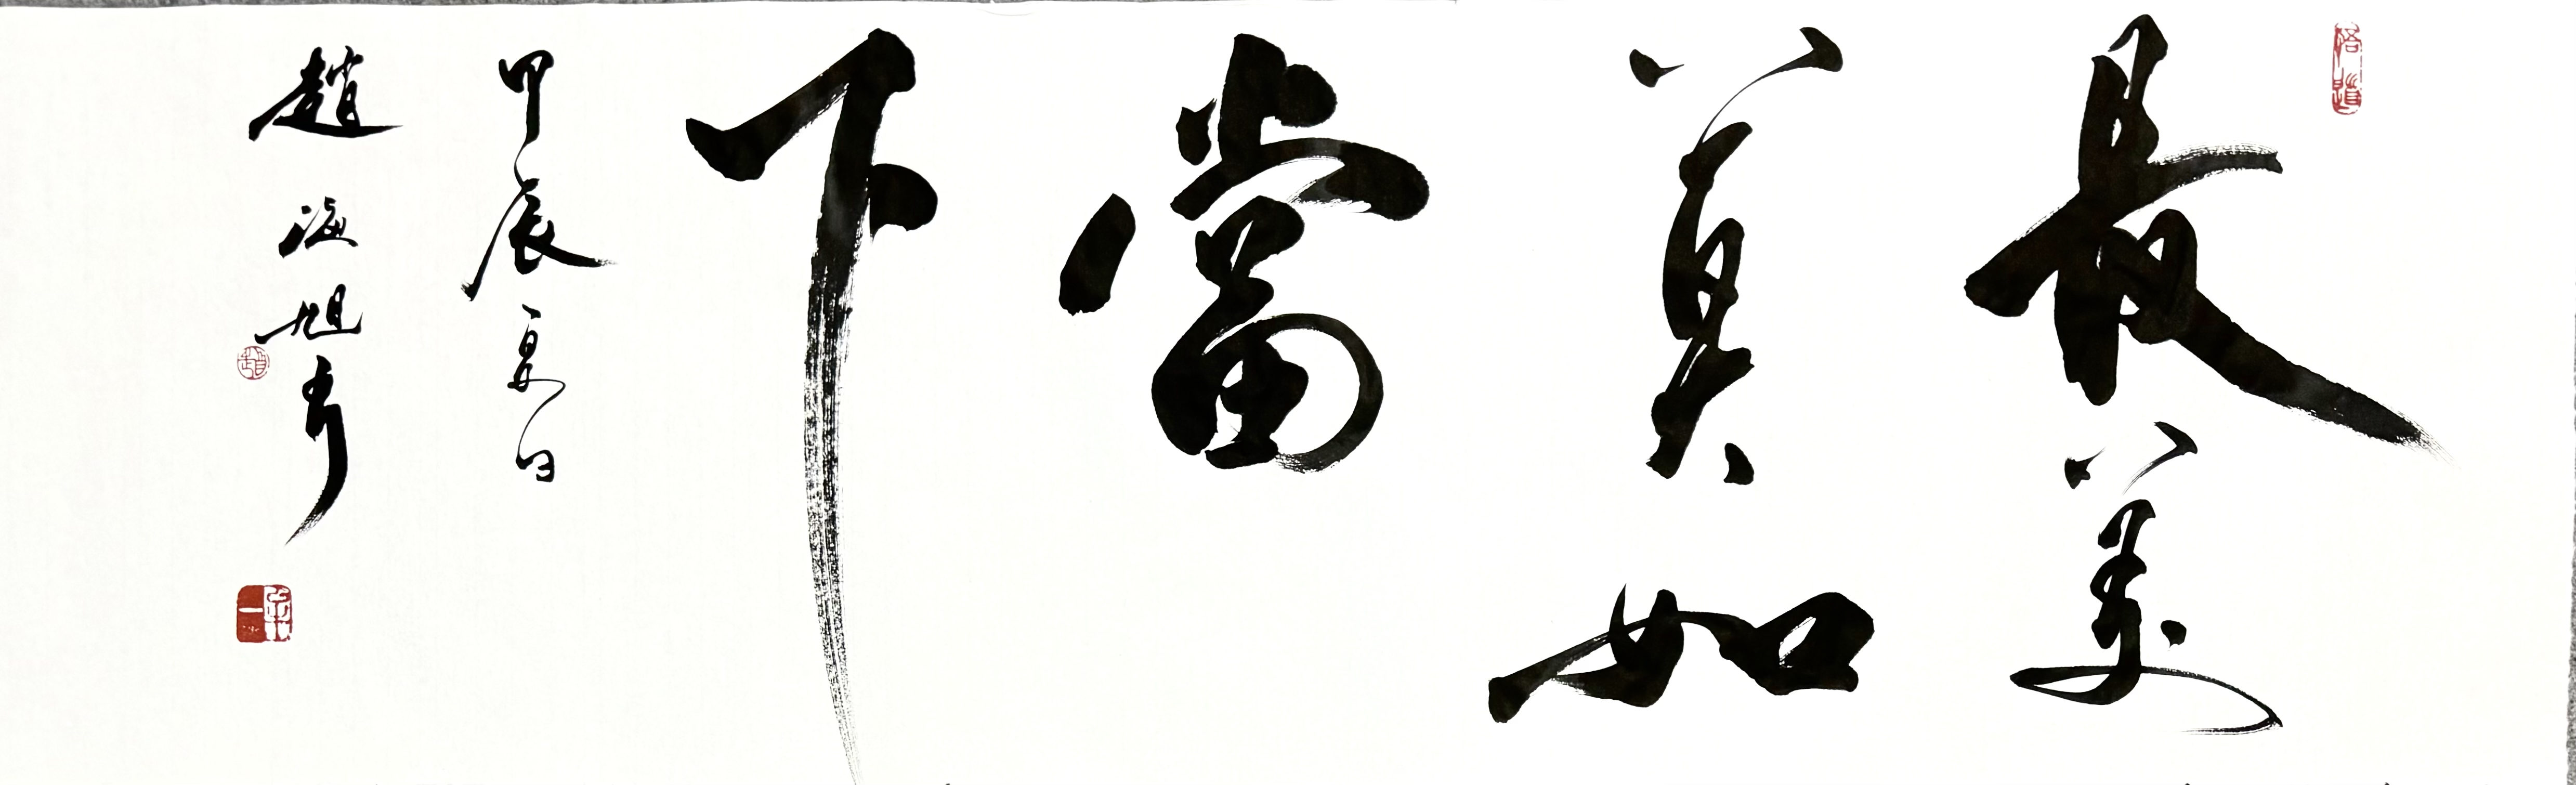 最美
莫如
當
下
甲辰夏日
趙海旭書
悟道